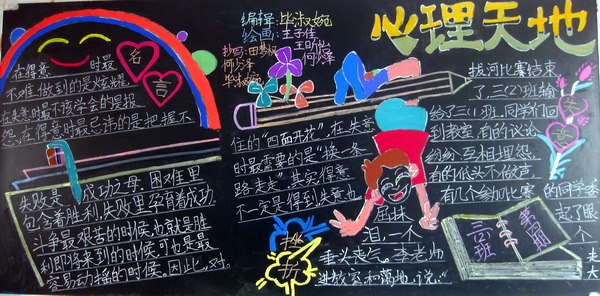 心理天地
编辑:毕淑婉
绘画:王子佳
名言
在得意 时最
不难做到的是炫耀.
在失意时最不该学会的是报
怨,在得意时最忌讳的是把握不
失败是 成功之母.困难里
包含着胜利,失败里孕育着成功
斗争最艰苦的时候,也就是胜
利即将来到的时候,可也是最
容易动摇的时候.因此,对.
住的“四面开花”.在失意
时最需要的是“换一条
路走走”.其实得意
不一定是得到失意也
拔河比赛结束
了,三(2)班输
给了三(1)班.同学们回
到教室,有的议论
纷纷互相埋怨.
有的低头不做声.
有几个参加比赛的同学委
屈抹 起了眼
泪,一个 个
垂头丧气.李老师 走
进教室和蔼地说:“ 大
三(2)班
第一期